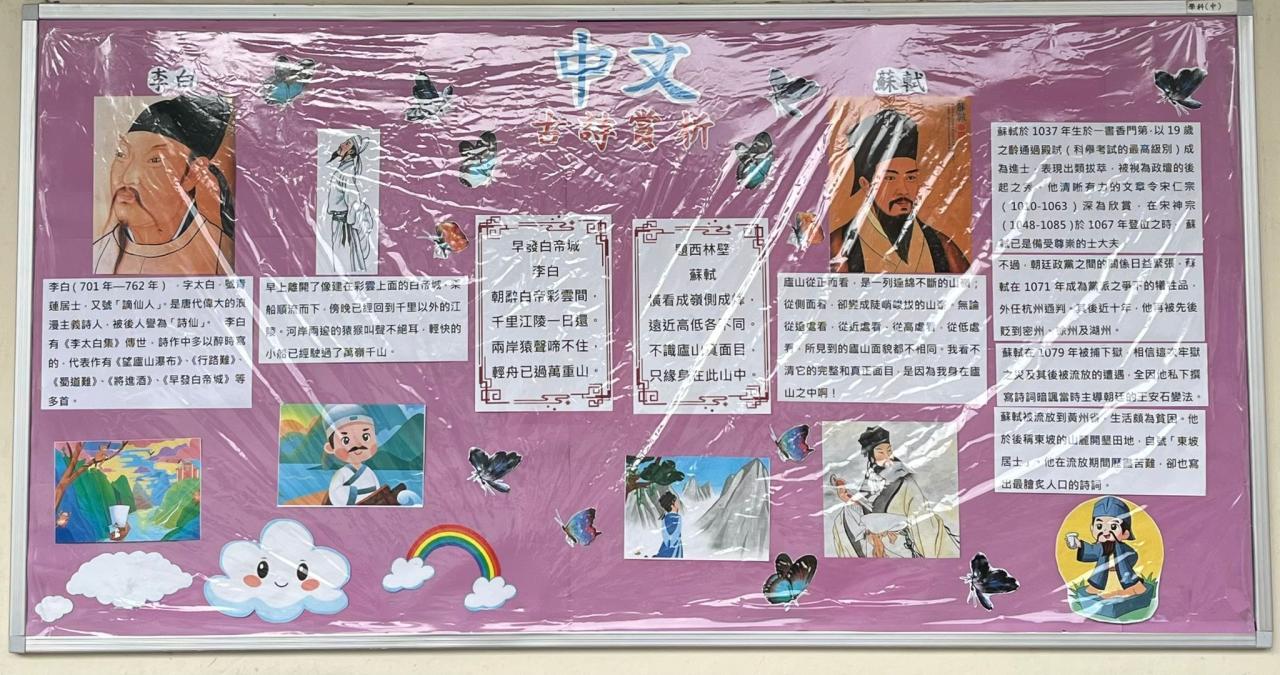 學科(中)
中文
古詩賞析
李白
李白(701年—762年),字太白,號青
蓮居士,又號「謫仙人」。是唐代偉大的浪
漫主義詩人,被後人譽為「詩仙」。 李白
有《李太白集》傳世,詩作中多以醉時寫
的,代表作有《望廬山瀑布》、《行路難》、
《蜀道難》、《將進酒》、《早發白帝城》等
多首。
早上離開了像建在彩雲上面的白帝城,乘
船順流而下,傍晚已經回到千里以外的江
陵。河岸兩邊的猿猴叫聲不絕耳,輕快的
小船已經駛過了萬嶺千山。
早發白帝城
李白
朝辭白帝彩雲間,
千里江陵一日還。
兩岸猿聲啼不住,
輕舟已過萬重山。
題西林壁
蘇軾
橫看成嶺側成峰,
遠近高低各不同。
不識廬山真面目,
只緣身在此山中。
蘇軾
廬山從正面看,是一列連綿不斷的山嶺;
從側面看,卻變成陡峭峻拔的山峯,無論
從遠處看,從近處看,從高處看,從低處
看,所見到的廬山面貌都不相同。我看不
清它的完整和真正面目,是因為我身在廬
山之中啊!
蘇軾於 1037 年生於一書香門第,以 19 歲
之齡通過殿試(科舉考試的最高級別)成
為進士,表現出類拔萃,被視為政壇的後
起之秀。他清晰有力的文章令宋仁宗
(1010-1063)深為欣賞,在宋神宗
(1048-1085)於 1067 年登位之時,蘇
軾已是備受尊崇的士大夫
不過,朝廷政黨之間的關係日益緊張,蘇
軾在 1071 年成為黨派之爭下的犧牲品,
外任杭州通判。其後近十年,他再被先後
貶到密州、徐州及湖州。
蘇軾在 1079 年被捕下獄,相信這次牢獄
之災及其後被流放的遭遇,全因他私下撰
寫詩詞暗諷當時主導朝廷的王安石變法。
蘇軾被流放到黃州省,生活頗為貧困。他
於後稱東坡的山麓開墾田地,自號「東坡
居士」。他在流放期間歷盡苦難,卻也寫
出最膾炙人口的詩詞。